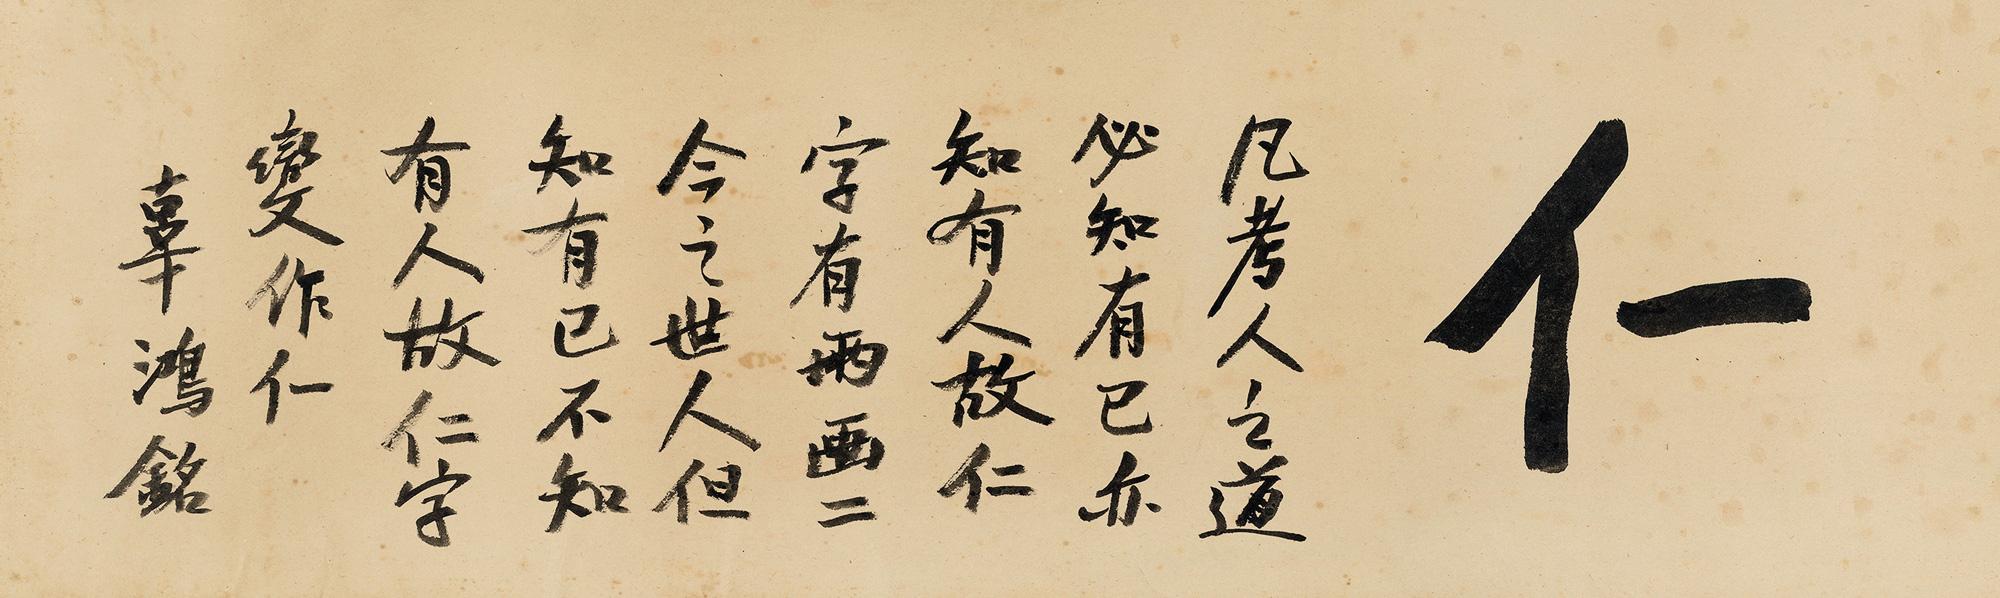 亻一
凡考人之道
必知有己亦
知有人故仁
字有兩画二
今之世人但
知有己不知
有人故仁字
變作亻一
辜鴻銘